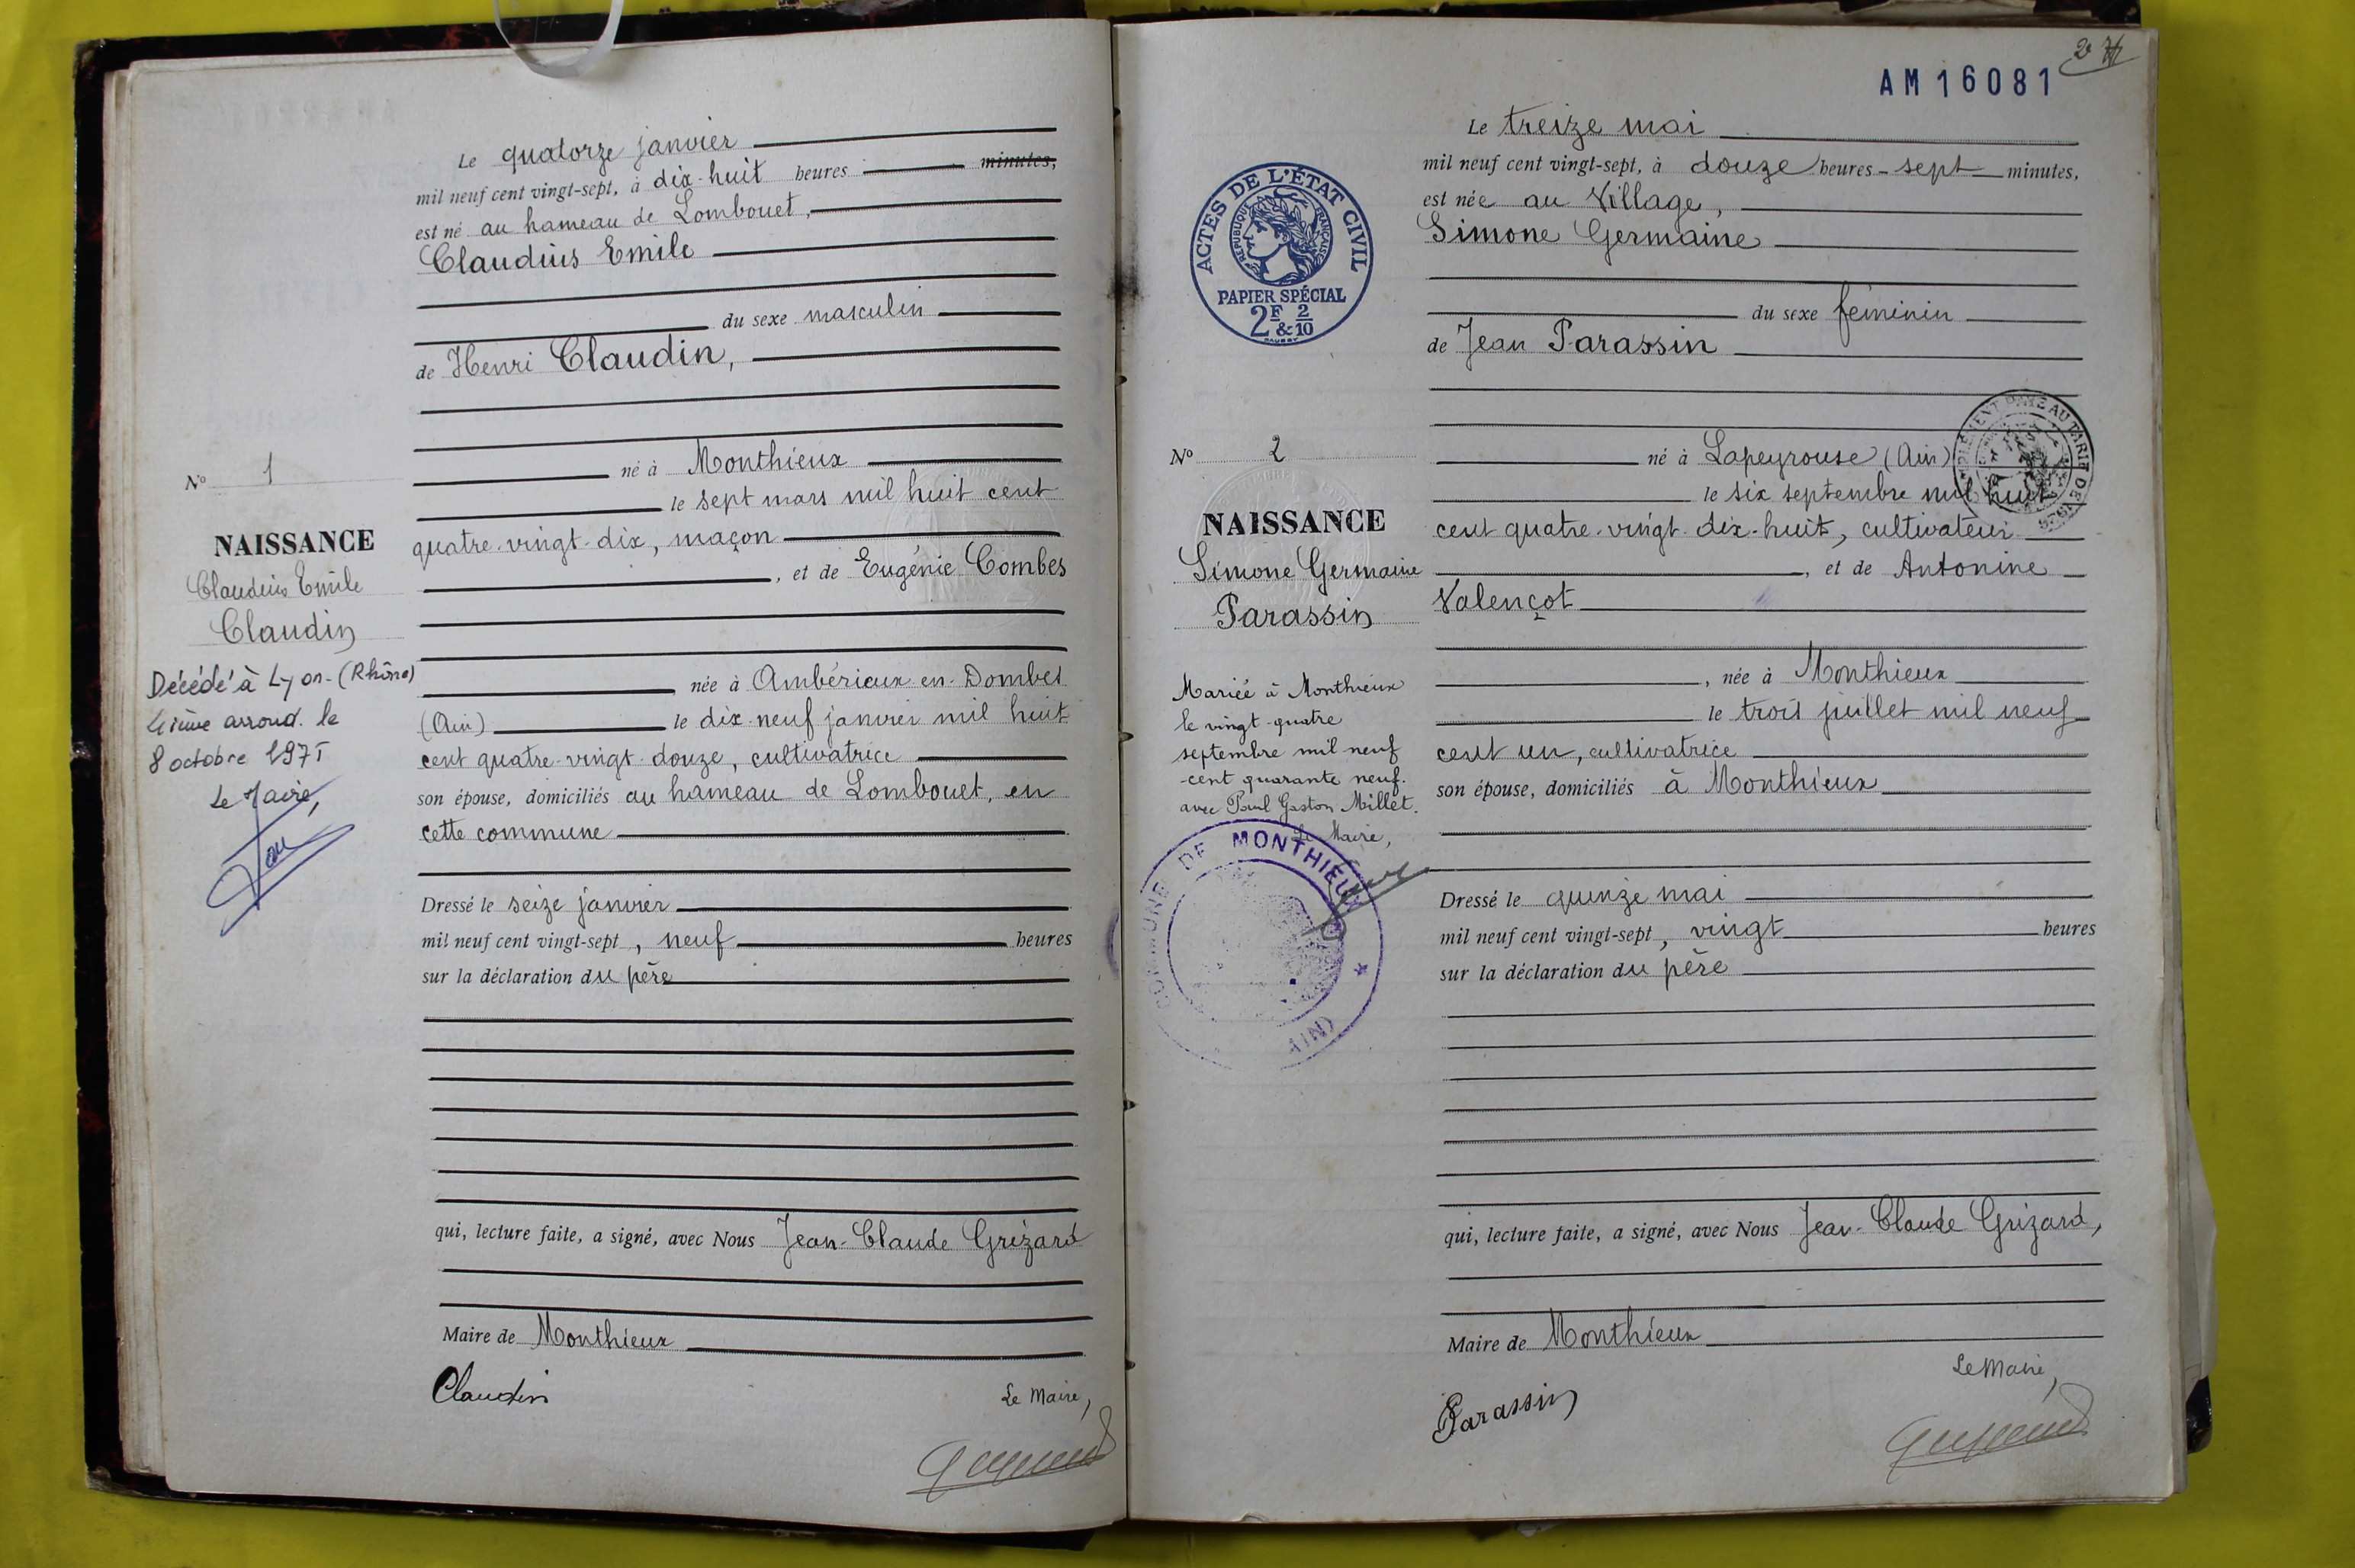 Le quatorze janvier
mil neuf cent vingt-sept, à dix-huit heures minutes,
est né au hameau de Lombouet,
Claudius Emile
du sexe masculin
de Henri Claudin,
né à Monthieux
le sept mars mil huit cent
quatre-vingt-dix, maçon
, et de Eugénie Combes
née à Ambérieux-en-Dombes
(Ain) le dix-neuf janvier mil huit
cent quatre-vingt-douze, cultivatrice
son épouse, domiciliés au hameau de Lombouet, en
cette commune
Dressé le seize janvier
mil neuf cent vingt-sept, neuf heures
sur la déclaration du père
qui, lecture faite, a signé, avec Nous Jean-Claude Grizard
Maire de Monthieux
Claudin
Le Maire,
No 1
NAISSANCE
Claudius Emile
Claudin
Décédé à Lyon-(Rhône)
arrond. le
8 octobre 1971
Le Maire,
2
AM16081
Le treize mai
mil neuf cent vingt-sept, à douze heures-sept minutes,
est née au Village,
Simone Germaine
du sexe féminin
de Jean Parassin
né à Lapeyrouse (Ain)
le six septembre mil huit
cent quatre-vingt-dix-huit, cultivateur
, et de Antonine
Valençot
, née à Monthieux
le trois juillet mil neuf
cent un, cultivatrice
son épouse, domiciliés à Monthieux
Dressé le quinze mai
mil neuf cent vingt-sept, vingt heures
sur la déclaration du père
qui, lecture faite, a signé, avec Nous Jean-Claude Grizard,
Maire de Monthieux
Parassin
Le Maire,
ACTES DE L'ÉTAT CIVIL
RÉPUBLIQUE FRANÇAISE
PAPIER SPÉCIAL
2F & 2/10
No 2
NAISSANCE
Simone Germaine
Parassin
Mariée à Monthieux
le vingt-quatre
septembre mil neuf
cent quarante neuf.
avec Paul Gaston Millet.
Le Maire,
COMMUNE DE MONTHIEUX
(AIN)